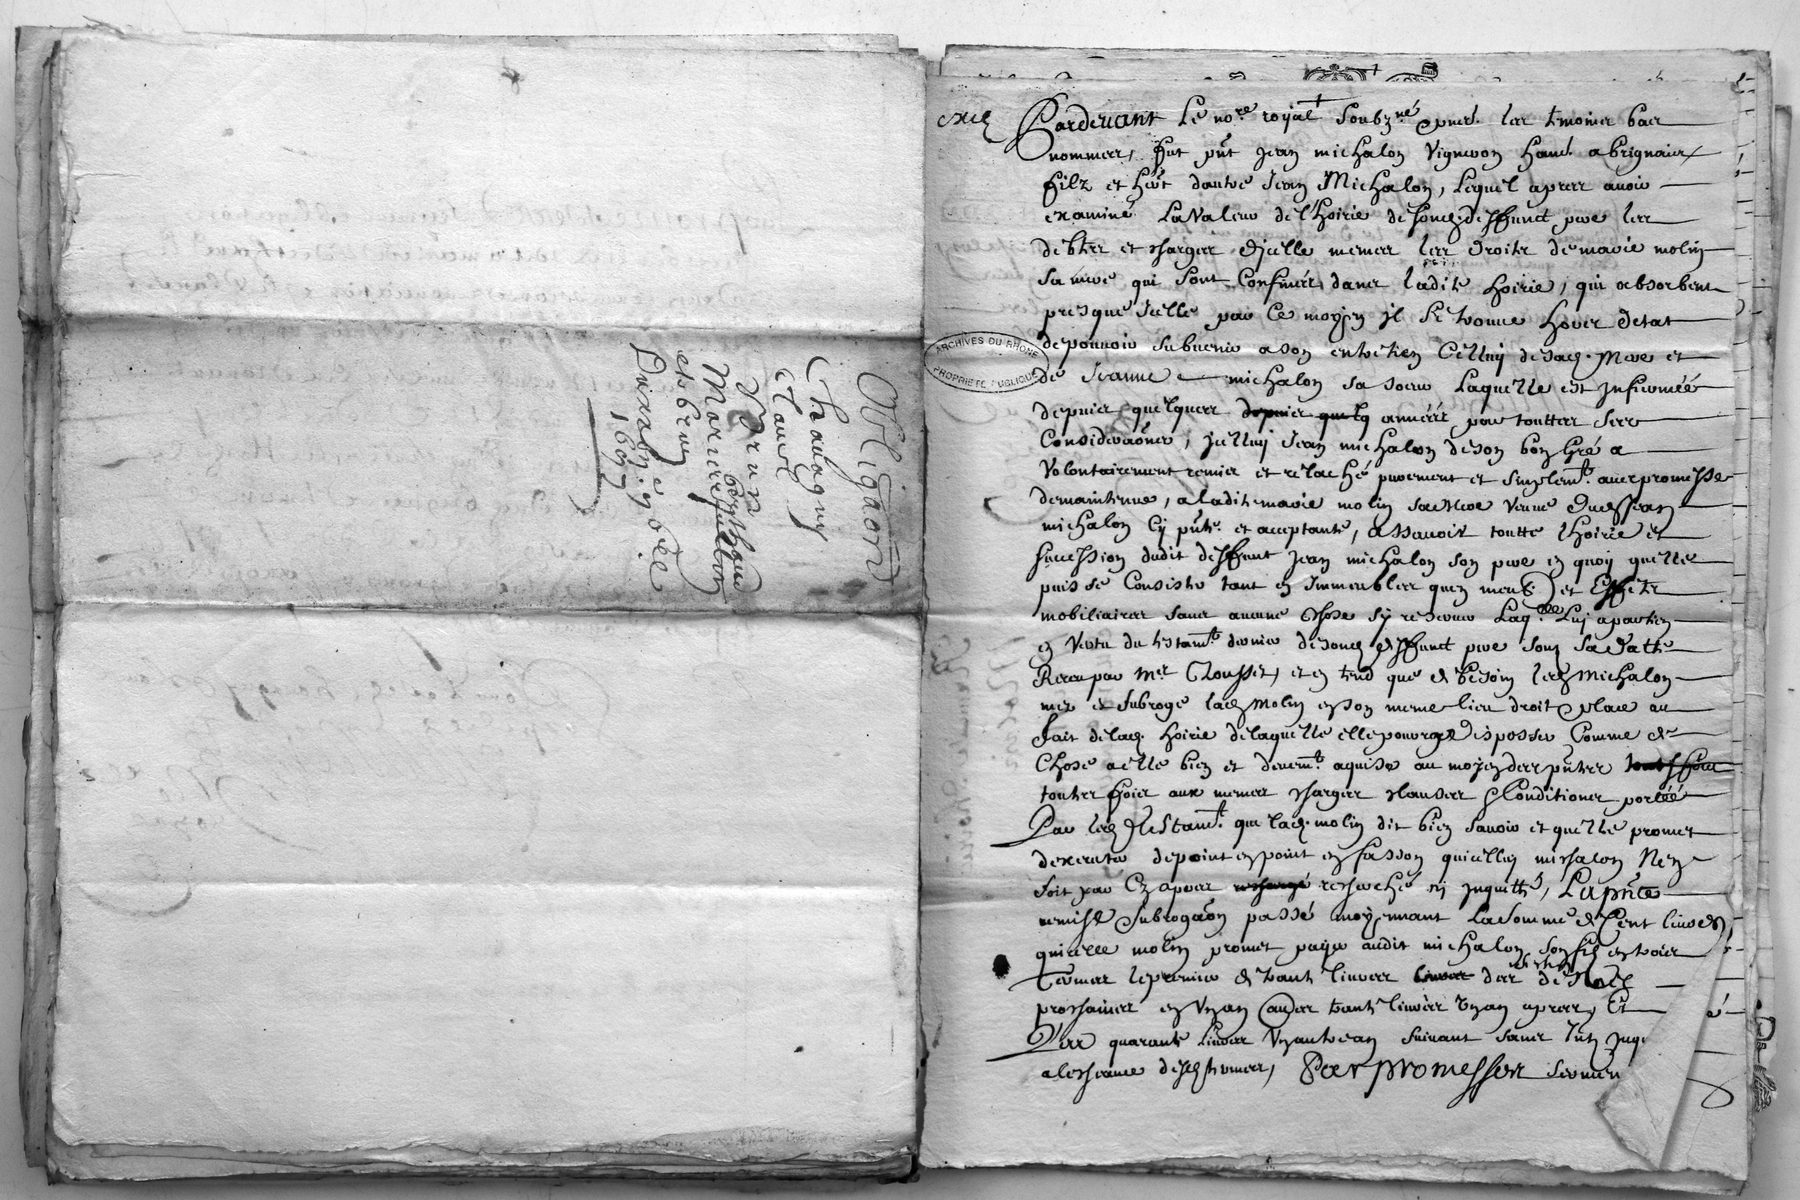 Obligaon
Chavagny
claude
Brun
berthoud
Marie
et brun
1697
ARCHIVES DU RHONE
PROPRIETE PUBLIQUE
Pardevant le no.re royal soubz.né & pnts. les temoins bas
nommes, fut pnt Jean michalon Vigneron hant. a brignais
filz et herit. dautre Jean Michalon, lequel apres avoir
examiné la valeur de l'hoirie de son d. deffunct pere les
debtes et charges d'icelle memes les droits de marie molin
sa mere qui sont confinées dans ladite hoirie, qui absorbent
presque icelle par ce moyen il se trouve hors detat
de pouvoir subvenir a son entretien celluy de sad. Mere et
de Jeanne michalon sa soeur laquelle est infirmeé
depuis quelques depuis quelq années, par touttes ses
Consideraons, icelluy Jean michalon de son bon gré a
volontairement remis et relaché purement et simplemt. avec promesse
de maintenue, a ladite marie molin sa mere veuve dud. Jean
michalon cy pnte. et acceptante, assavoir toutte lhoirie et
succession dudit deffunt Jean michalon son pere en quoy quelle
puisse Consister tant en Immeubles quen meub. et Effets
mobiliaires sans aucune chose sy reserver laq.lle luy apartien
en vertu du testamt. dernier de son d. deffunct pere sous sa datte
Receu par me. Clousset, et en tend que de besoin led. Michalon
met et subroge lad. Molin en son meme lieu droit & place au
fait de lad. hoirie de laquelle elle pourra disposser Comme de
Chose a elle bien et deuemt. aquise au moyen des pntes
touttes fois aux memes charges clauses & Conditiones porteé
Par led. testamt. que lad. molin dit bien savoir et quelle promet
dexecuter de point en point en fasson quicelluy michalon Nen
soit par cy apres recherché ni inquietté, La pnte
remise & subrogaon passé moyennant la somme de Cent livres
quicelle molin promet payer audit michalon son fils en trois
termes le premier de trante livres livres des de Noel
prochaines en un an autres trante livres un an apres, Et
Les quarante livres un autre an suivant sans
a lescheance desd. termes, Par promesses sermen